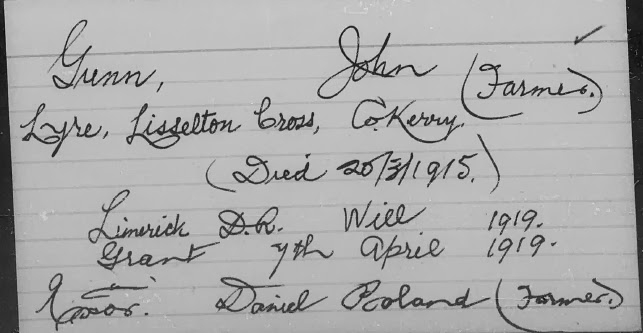 Gunn, John (Farmer.)
Lyre, Lisselton Cross, Co. Kerry.
(Died 20/3/1915.)
Limerick D.R. Will 1919.
Grant 7th April 1919.
Exor. Daniel Boland (Farmer.)